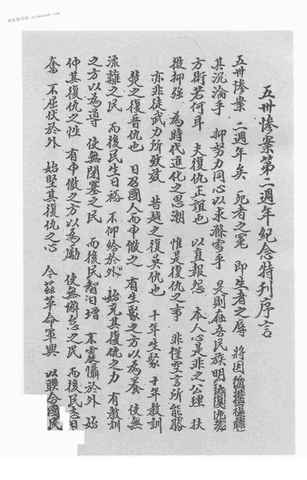 五卅慘案第二週年紀念特刊序言
五卅慘案 二週年矣 死者之冤 卽生者之辱 將因循
其沉淪乎 抑努力同心以求滌雪乎 是則在吾民族明
方術若何耳 夫復仇正誼也 以直報怨 本人心是非之公理 扶
根抑强 為時代進化之思潮 惟是復仇之事 非僅空言所能勝
亦非徒武力所致效 昔越之復吳仇也 十年生聚 十年敎訓
楚之復晉仇也 日為國人而申儆之 有生聚之方以為養 使無
流離之民 而後民生日裕 不仰給於外 始克其復仇之力 有敎訓
之方以為導 使無閉塞之民 而後民智日增 不震懾於外 始
仲其復仇之性 有申儆之方以為勵 使無 之民 而後民志日
奮 不屈伏於外 始堅其復仇之心 今茲革命軍興 以聯合國民